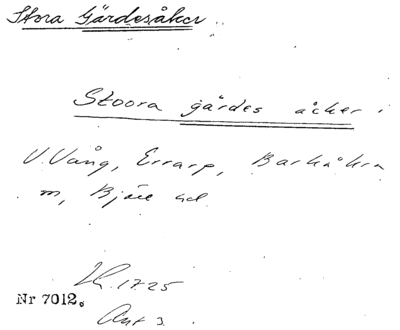 Stora Gärdesåker
Stoora gärdes åcker
V. Vång, Errarp, Barkåkra
m, Bjäre hd
1725
Nr 7012.
Akt 3.